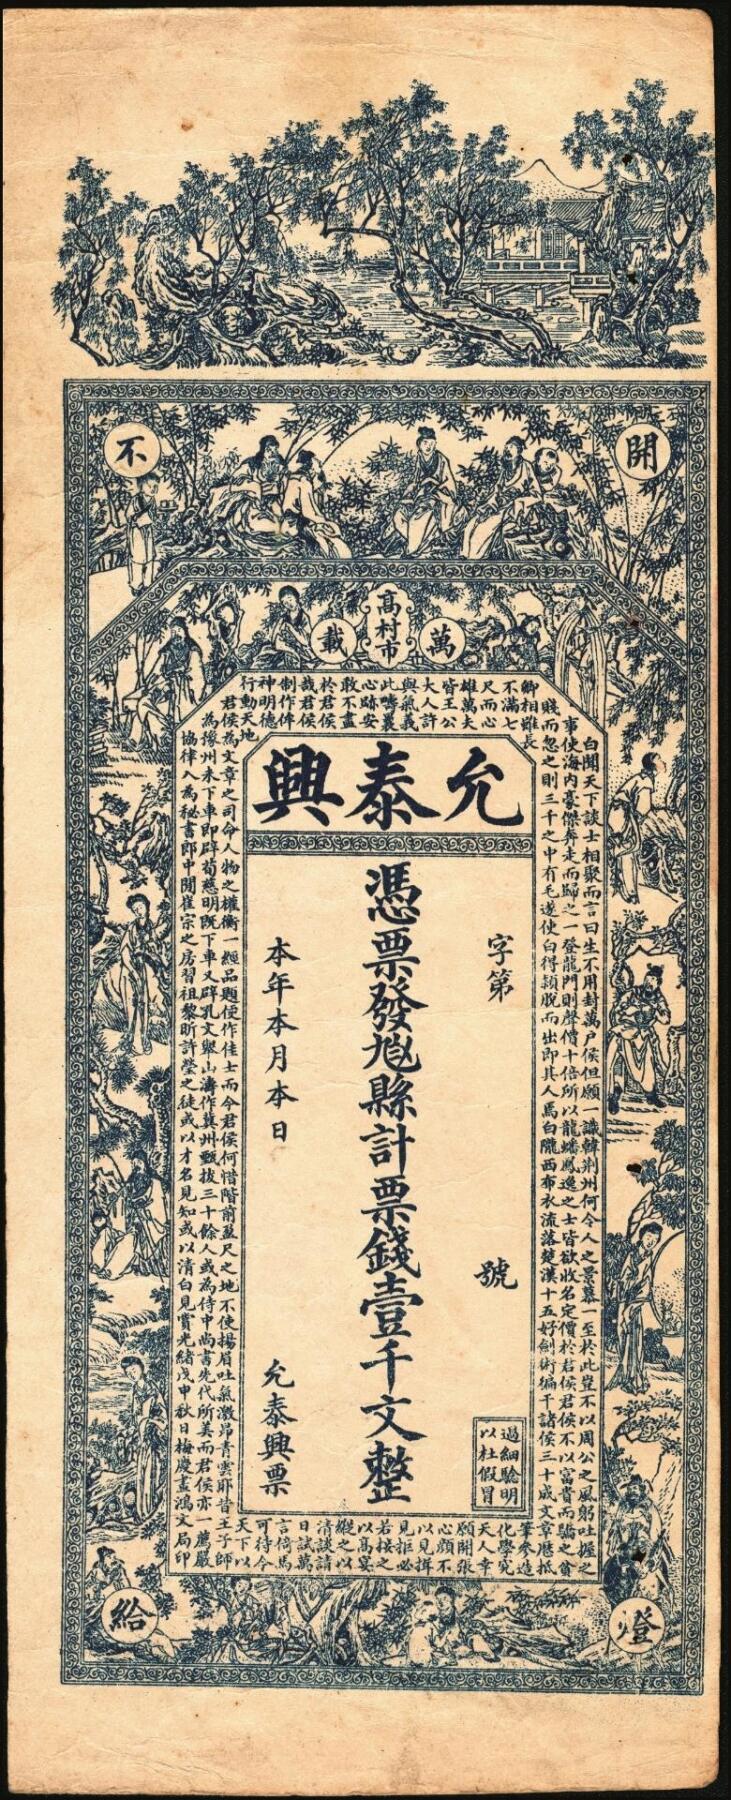 開
不
燈
給
萬
載
高村市
允泰興
字第
號
憑票發兌縣計票錢壹千文整
本年本月本日
允泰興票
過細驗明
以杜假冒
白聞天下談士相聚而言曰生不用封萬户侯但願一識韓荆州何令人之景慕一至於此豈不以周公之風躬吐握之
事使海内豪傑奔走而歸之一登龍門則聲價十倍所以龍蟠鳳逸之士皆欲收名定價於君侯君侯不以富貴而驕之貧
賤而忽之則三千之中有毛遂使白得頴脱而出即其人焉白隴西布衣流落楚漢十五好劍術徧干諸侯三十成文章歷抵
卿相雖長
不滿七
尺而心
雄萬夫
皆王公
大人許
與氣義
此疇曩
心跡安
敢不盡
於君侯
哉君侯
制作侔
神明德
行動天地
筆參造
化學究
天人幸
願開張
心顏不
以見揖
見拒必
若接之
以高宴
縱之以
清談請
日試萬
言倚馬
可待今
天下以
君侯為文章之司命人物之權衡一經品題便作佳士而今君侯何惜階前盈尺之地不使揚眉吐氣激昂青雲耶昔王子師
為豫州未下車即辟荀慈明既下車又辟孔文舉山濤作冀州甄拔三十餘人或為侍中尚書先代所美而君侯亦一薦嚴
協律入為秘書郎中閒崔宗之房習祖黎昕許瑩之徒或以才名見知或以清白見賞光緒戊申秋日梅慶畫鴻文局印